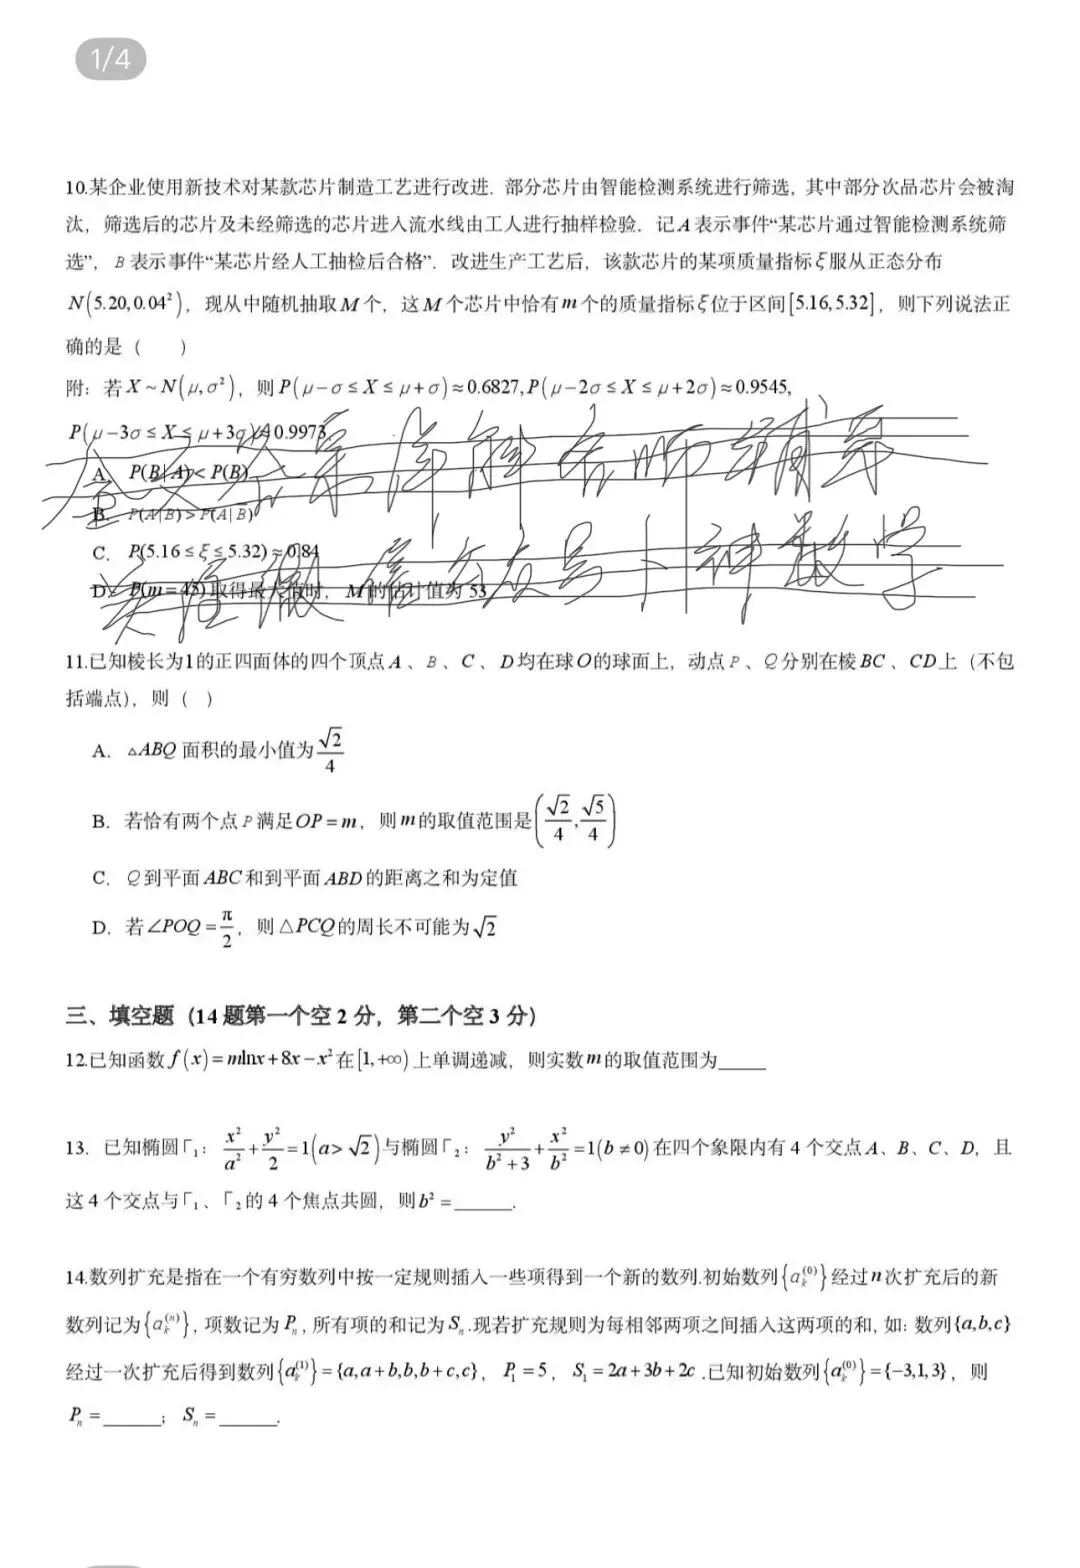 1/4
10.某企业使用新技术对某款芯片制造工艺进行改进．部分芯片由智能检测系统进行筛选，其中部分次品芯片会被淘
汰，筛选后的芯片及未经筛选的芯片进入流水线由工人进行抽样检验．记A表示事件“某芯片通过智能检测系统筛
选”，B表示事件“某芯片经人工抽检后合格”．改进生产工艺后，该款芯片的某项质量指标ξ服从正态分布
N(5.20,0.04²)，现从中随机抽取M个，这M个芯片中恰有m个的质量指标ξ位于区间[5.16,5.32]，则下列说法正
确的是（　　）
附：若X~N(μ,σ²)，则P(μ−σ≤X≤μ+σ)≈0.6827,P(μ−2σ≤X≤μ+2σ)≈0.9545,
P(μ−3σ≤X≤μ+3σ)≈0.9973.
A．P(B|A)<P(B)
B．P(A|B)>P(A|B̄)
C．P(5.16≤ξ≤5.32)≈0.84
D．P(m=45)取得最大值时，M的估计值为53
老师辅导
微信公众号卜神数学
11.已知棱长为1的正四面体的四个顶点A、B、C、D均在球O的球面上，动点P、Q分别在棱BC、CD上（不包
括端点），则（ ）
A．△ABQ面积的最小值为√2/4
B．若恰有两个点P满足OP=m，则m的取值范围是(√2/4,√5/4)
C．Q到平面ABC和到平面ABD的距离之和为定值
D．若∠POQ=π/2，则△PCQ的周长不可能为√2
三、填空题（14题第一个空2分，第二个空3分）
12.已知函数f(x)=mlnx+8x−x²在[1,+∞)上单调递减，则实数m的取值范围为_____
13．已知椭圆Γ₁：x²/a²+y²/2=1(a>√2)与椭圆Γ₂：y²/(b²+3)+x²/b²=1(b≠0)在四个象限内有4个交点A、B、C、D，且
这4个交点与Γ₁、Γ₂的4个焦点共圆，则b²=______.
14.数列扩充是指在一个有穷数列中按一定规则插入一些项得到一个新的数列.初始数列{aₖ⁽⁰⁾}经过n次扩充后的新
数列记为{aₖ⁽ⁿ⁾},项数记为Pₙ,所有项的和记为Sₙ.现若扩充规则为每相邻两项之间插入这两项的和,如:数列{a,b,c}
经过一次扩充后得到数列{aₖ⁽¹⁾}={a,a+b,b,b+c,c}，P₁=5，S₁=2a+3b+2c.已知初始数列{aₖ⁽⁰⁾}={−3,1,3}，则
Pₙ=______；Sₙ=______.